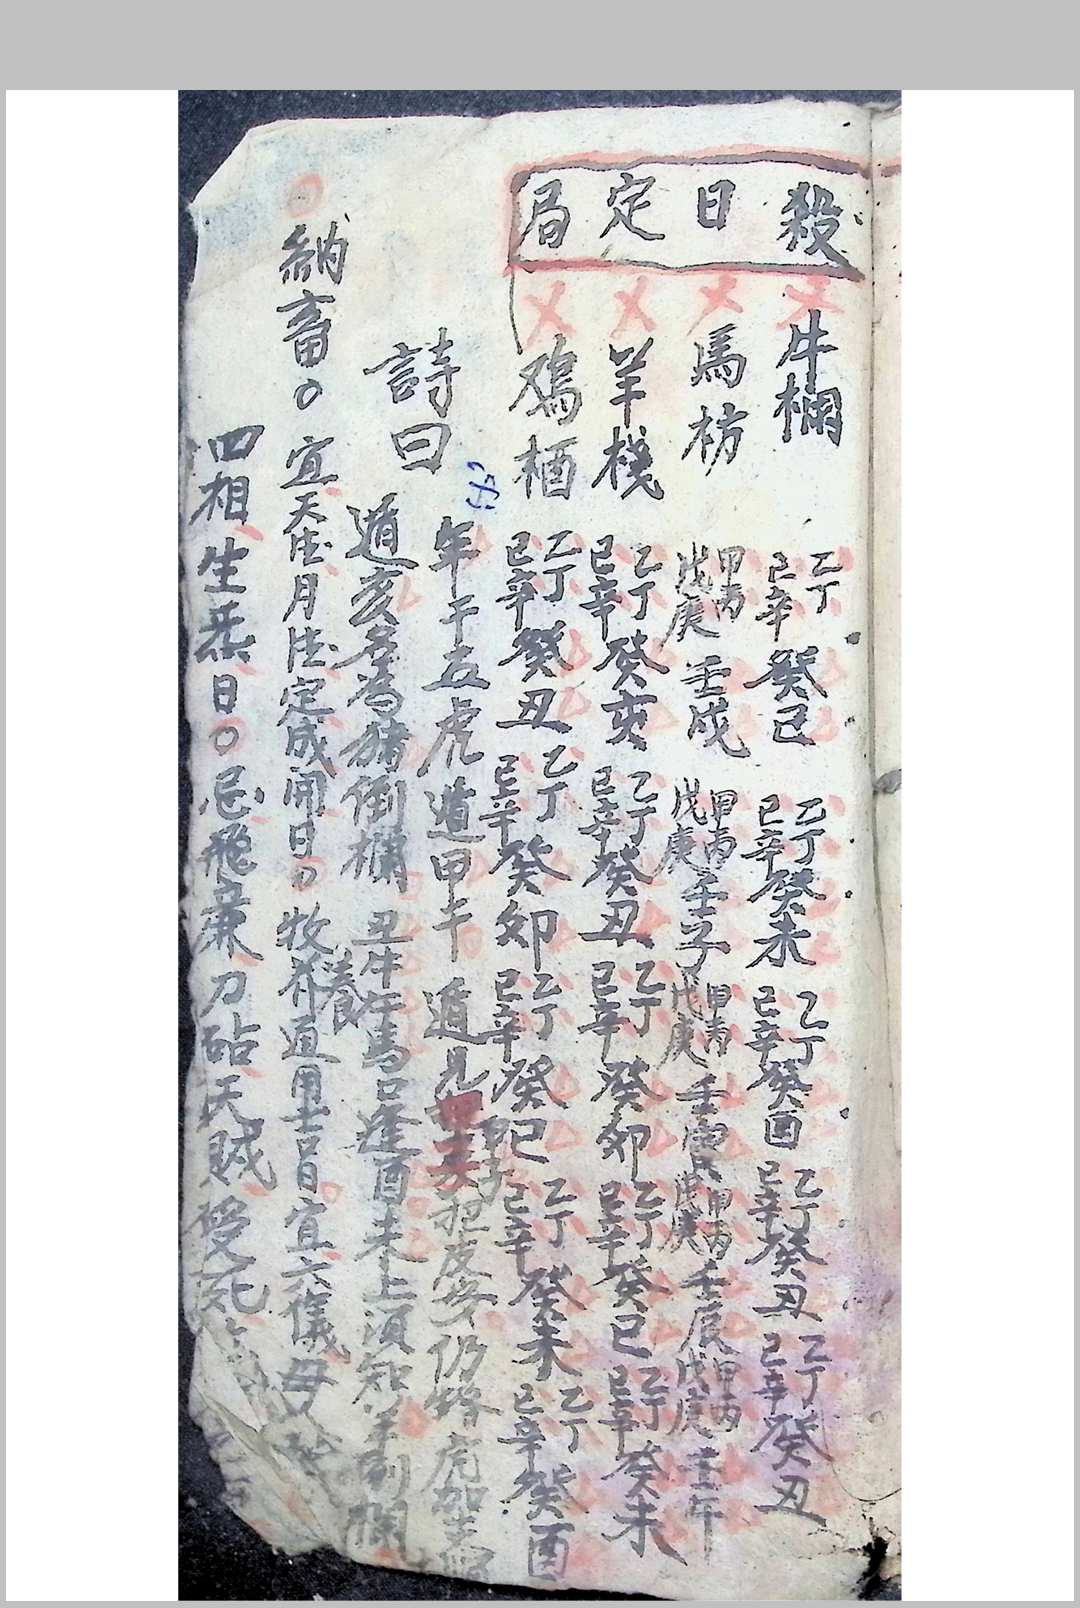 殺日定局
牛欄 乙丁己辛癸巳 乙丁己辛癸未 乙丁己辛癸酉 乙丁己辛癸丑 乙丁己辛癸丑
馬枋 甲丙戊庚壬戌 甲丙戊庚壬子 甲丙戊庚壬寅 甲丙戊庚壬辰 甲丙戊庚壬午
羊棧 乙丁己辛癸亥 乙丁己辛癸丑 乙丁己辛癸卯 乙丁己辛癸巳 乙丁己辛癸未
鳮栖 乙丁己辛癸丑 乙丁己辛癸卯 乙丁己辛癸巳 乙丁己辛癸未 乙丁己辛癸酉
詩曰
年干五虎遁甲午 遁見甲子 仍 虎
遁亥名為猪倒欄 丑牛午馬 逢酉未上須知羊 欄
納畜○宜天德月德定成開日○牧养養宜用 吉日宜六儀母
四相生炁日○忌飛廉刀砧天賊受死